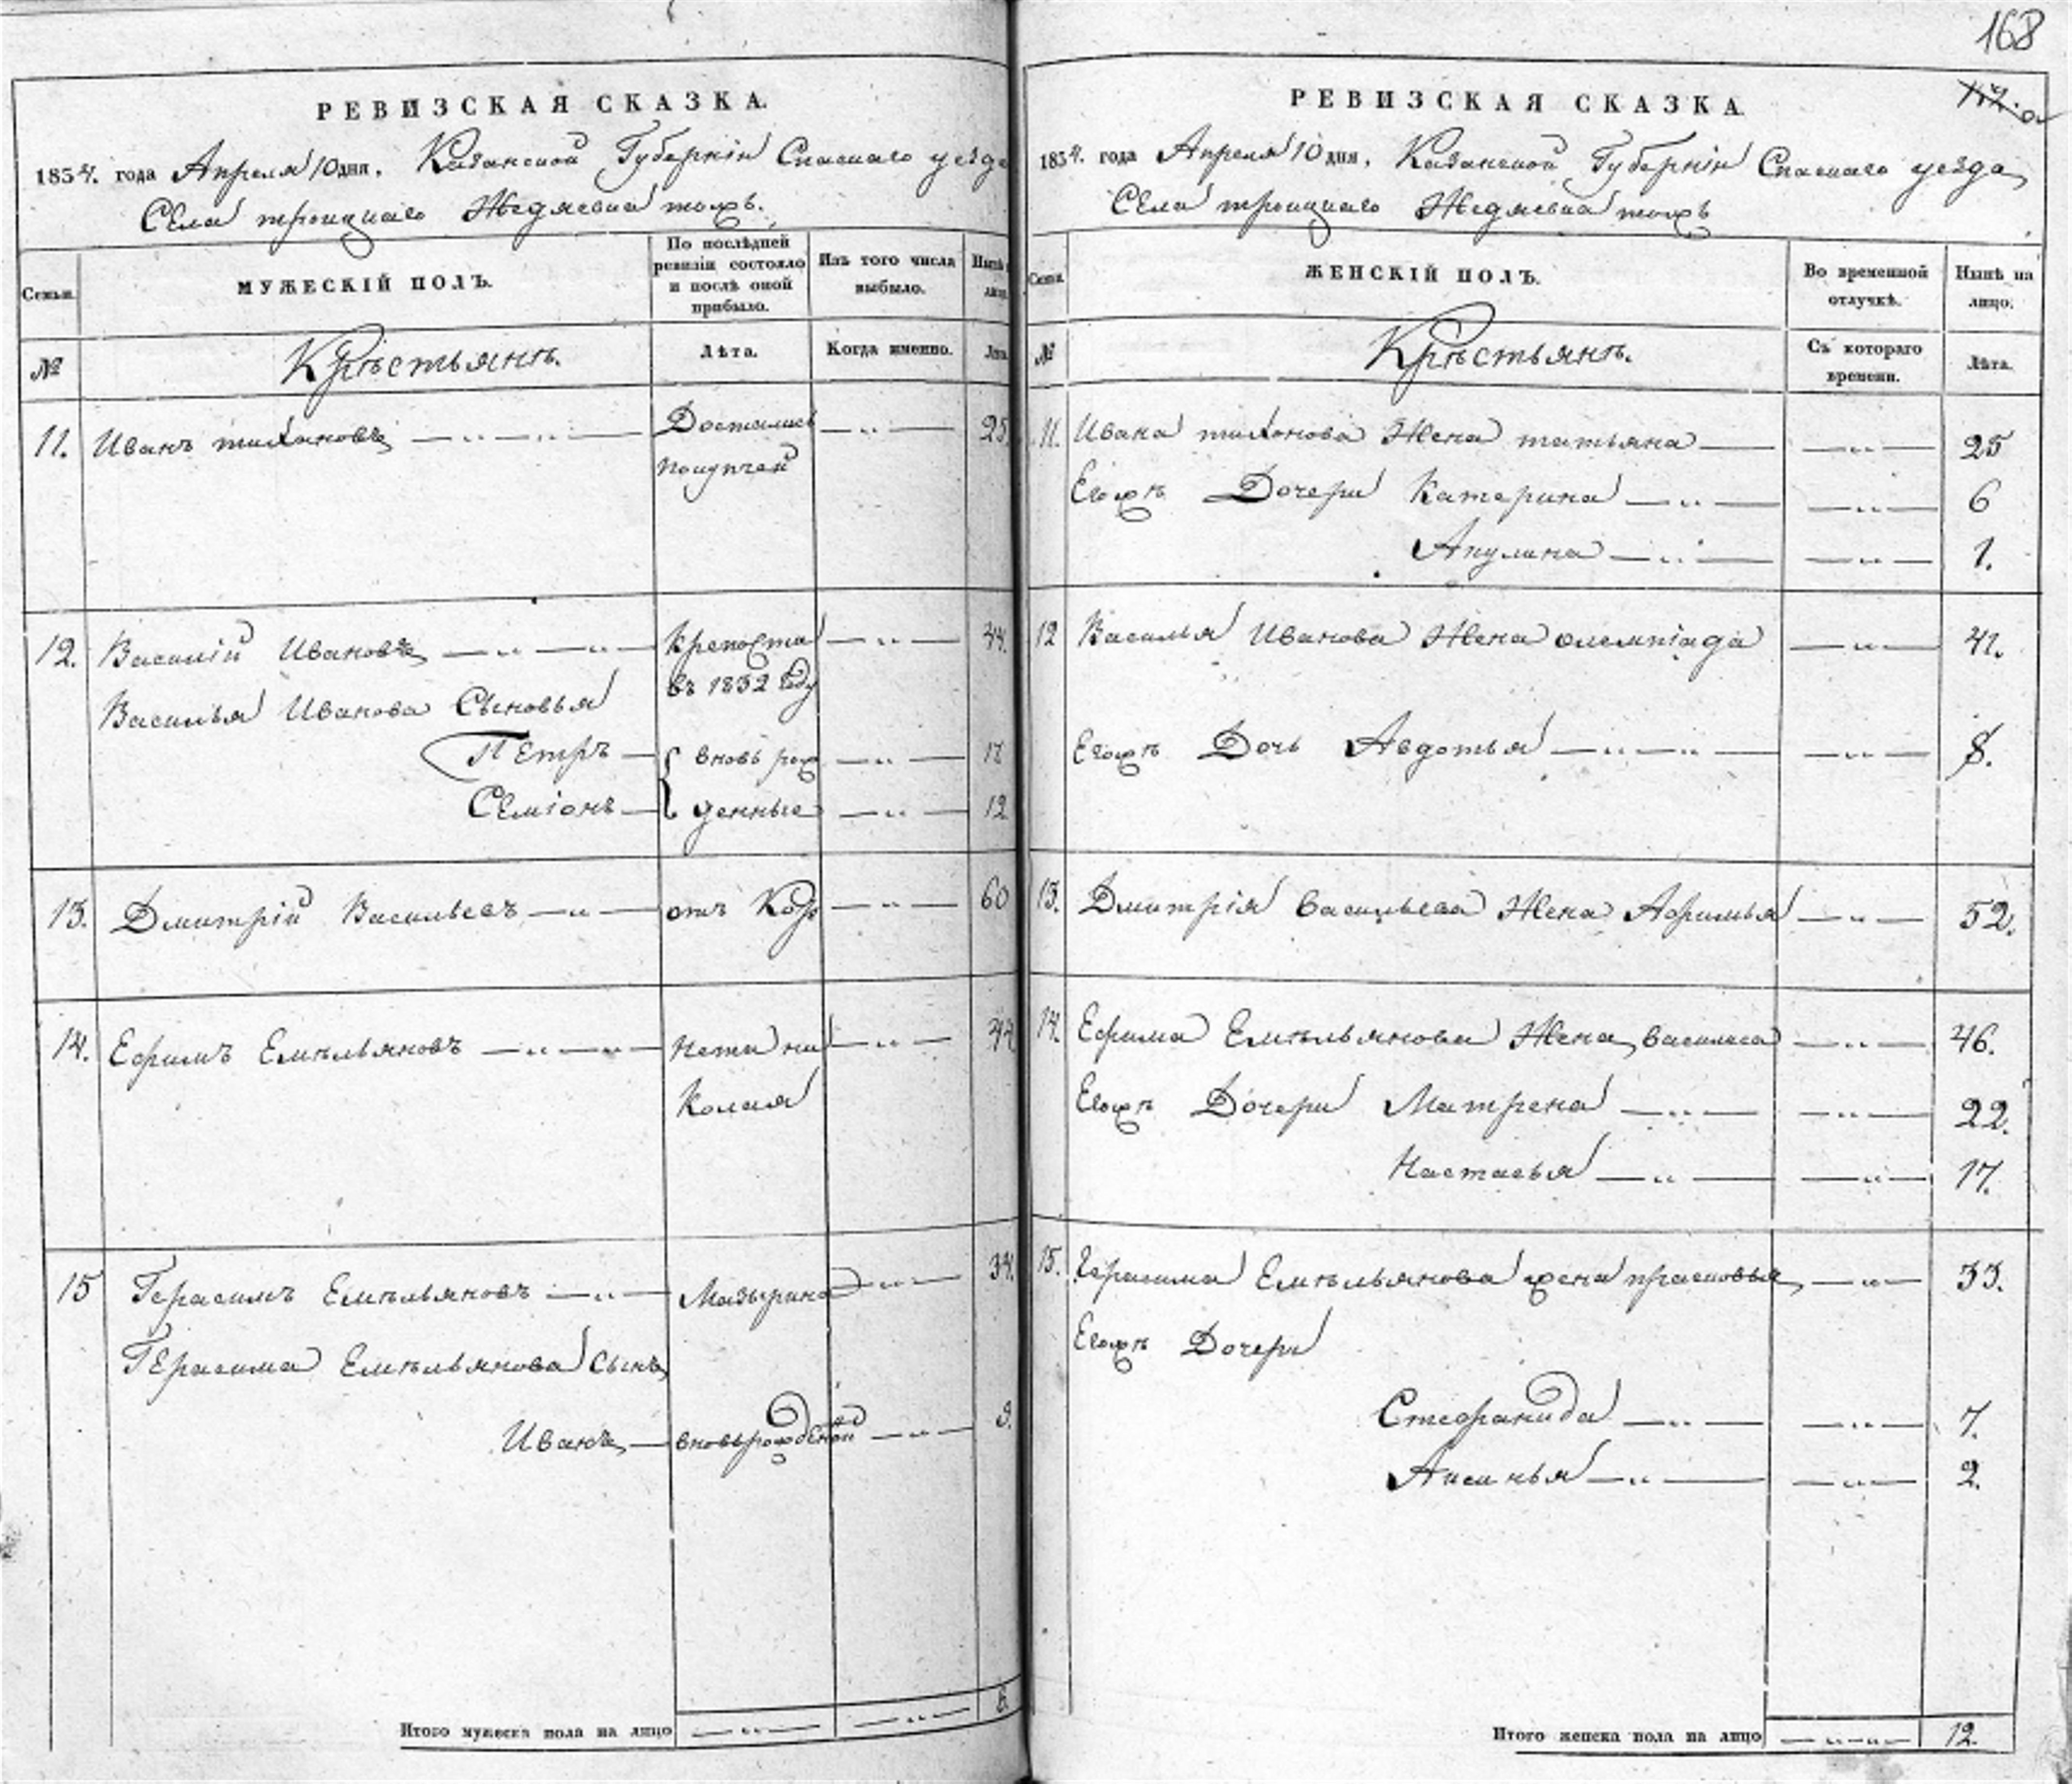 РЕВИЗСКАЯ СКАЗКА.
1854. года Апреля 10 дня, Казанской Губернiи Спаскаго уезда
Села троицкаго Жедяевка тожъ.
Семьи.
МУЖЕСКІЙ ПОЛЪ.
По послѣдней ревизіи состояло и послѣ оной прибыло.
Изъ того числа выбыло.
Нынѣ
№
Крѣстьянѣ.
Лѣта.
Когда именно.
Лѣта
11. Иванъ тихановъ Достались 25
покупчей
12. Василій Ивановъ Крепоста 44.
въ 1832 году
Василья Иванова Сыновья
Петръ вновь рож
Семіонъ денные 12
13. Дмитрій Васильевъ отъ Кор 60
14. Ефимъ Емѣльяновъ
15 Герасимъ Емѣльяновъ Мазырина 34.
Герасима Емѣльянова сынъ
Иванъ вновьрожденной
Итого мужеска пола на лицо
168
РЕВИЗСКАЯ СКАЗКА.
1854. года Апреля 10 дня, Казанской Губернiи Спаскаго уезда
Села троицкаго Жедяевка тожъ
Семьи.
ЖЕНСКІЙ ПОЛЪ.
Во временной отлучкѣ.
Нынѣ на лицо.
№
Крѣстьянѣ.
Съ котораго времени.
Лѣта.
11. Ивана тихонова Жена татьяна 25
Егожѣ Дочери Катерина 6
Акулина 1.
12 Василья Иванова Жена олемпіада 41.
Егожѣ Дочь Авдотья 8.
13. Дмитрія васильева Жена Афимья 52.
14. Ефима Емѣльянова Жена василиса 46.
Егожѣ Дочери Матрена 22.
Настасья 17.
15. Герасима Емѣльянова жена прасковья 33.
Егожѣ Дочери
Стефанида 7.
Аксинья 2.
Итого женска пола на лицо 12.